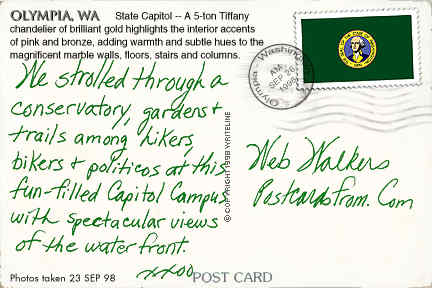 OLYMPIA, WA State Capitol -- A 5-ton Tiffany
chandelier of brilliant gold highlights the interior accents
of pink and bronze, adding warmth and subtle hues to the
magnificent marble walls, floors, stairs and columns.
We strolled through a
conservatory, gardens &
trails among hikers,
bikers & politicos at this
fun-filled Capitol Campus
with spectacular views
of the waterfront.
xxoo
Photos taken 23 SEP 98
POST CARD
© COPYRIGHT 1998 WRITELINE
Olympia - Washington
AM
SEP 26
1998
Web Walkers
Postcardsfrom.Com